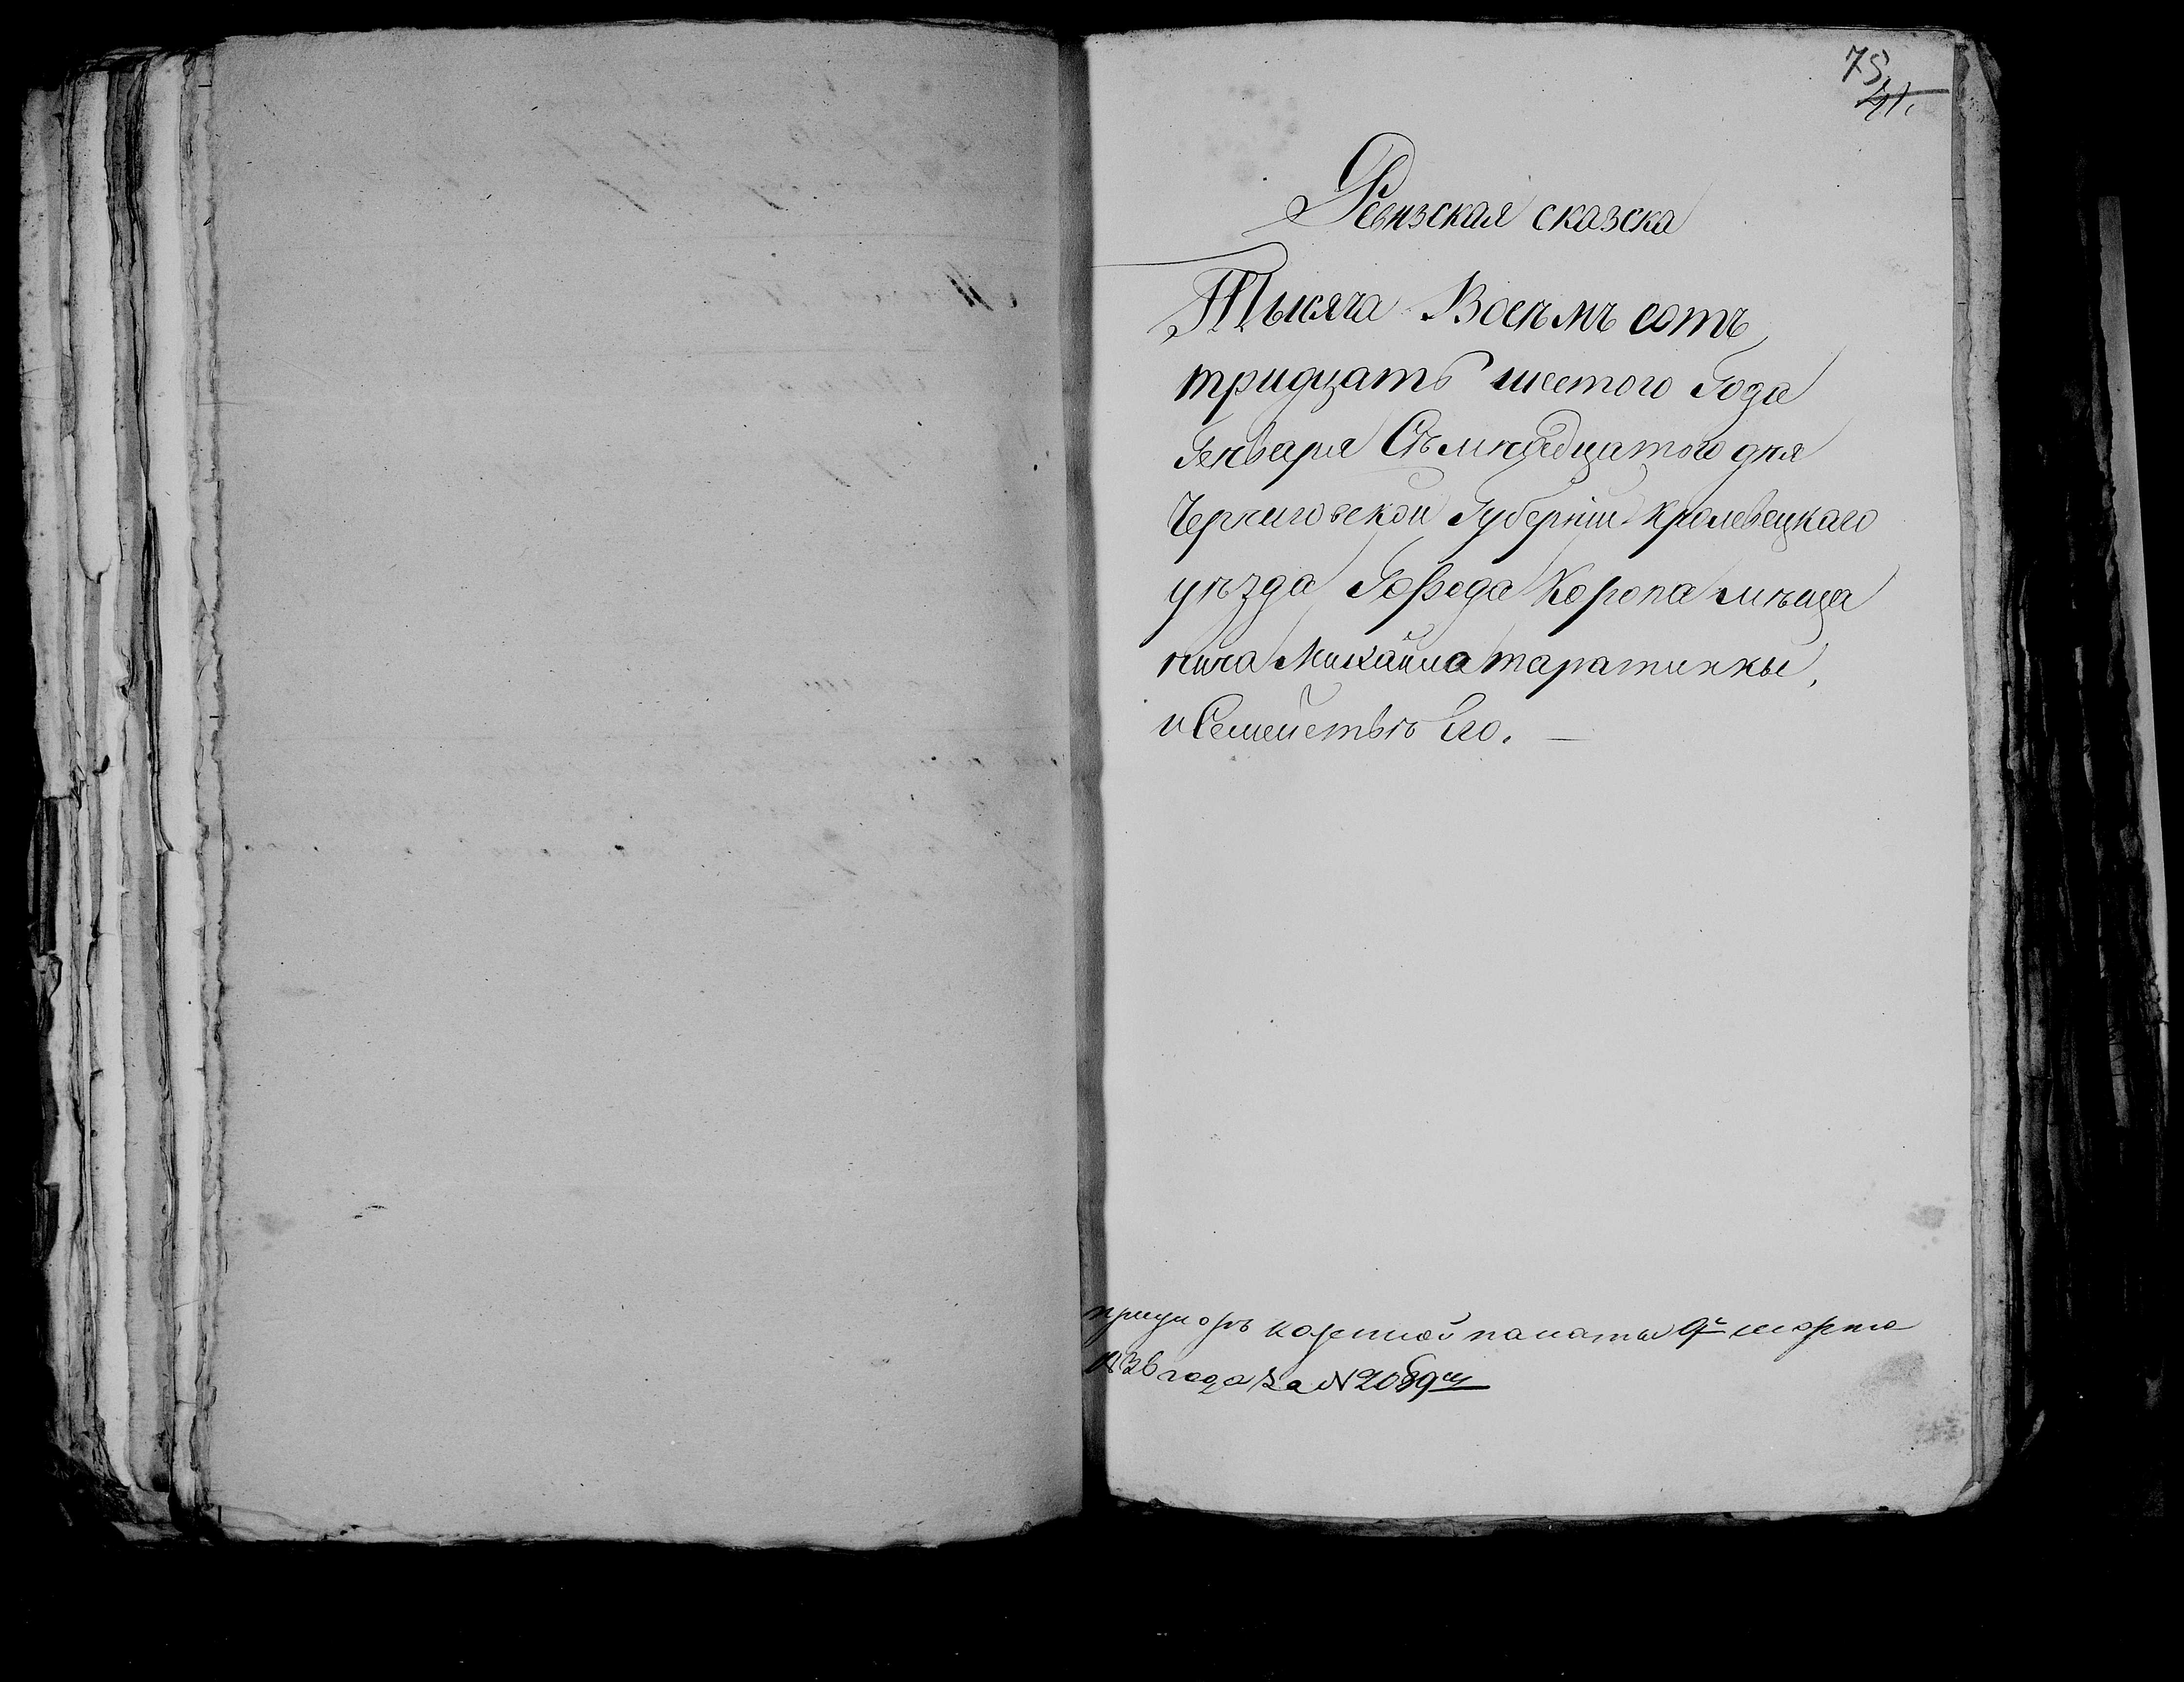 75
41.
Ревизская сказска
Тысяча Восемъ сотъ
тридцать шестого Года
Генваря Съмнадцатого дня
Черниговской Губерніи Кролевецкаго
уезда Города Коропа мѣща
нина Михайла таратинкы,
и Семействѣ Его. —
при указѣ казенной палаты 9го марта
1836 года за N 2089м